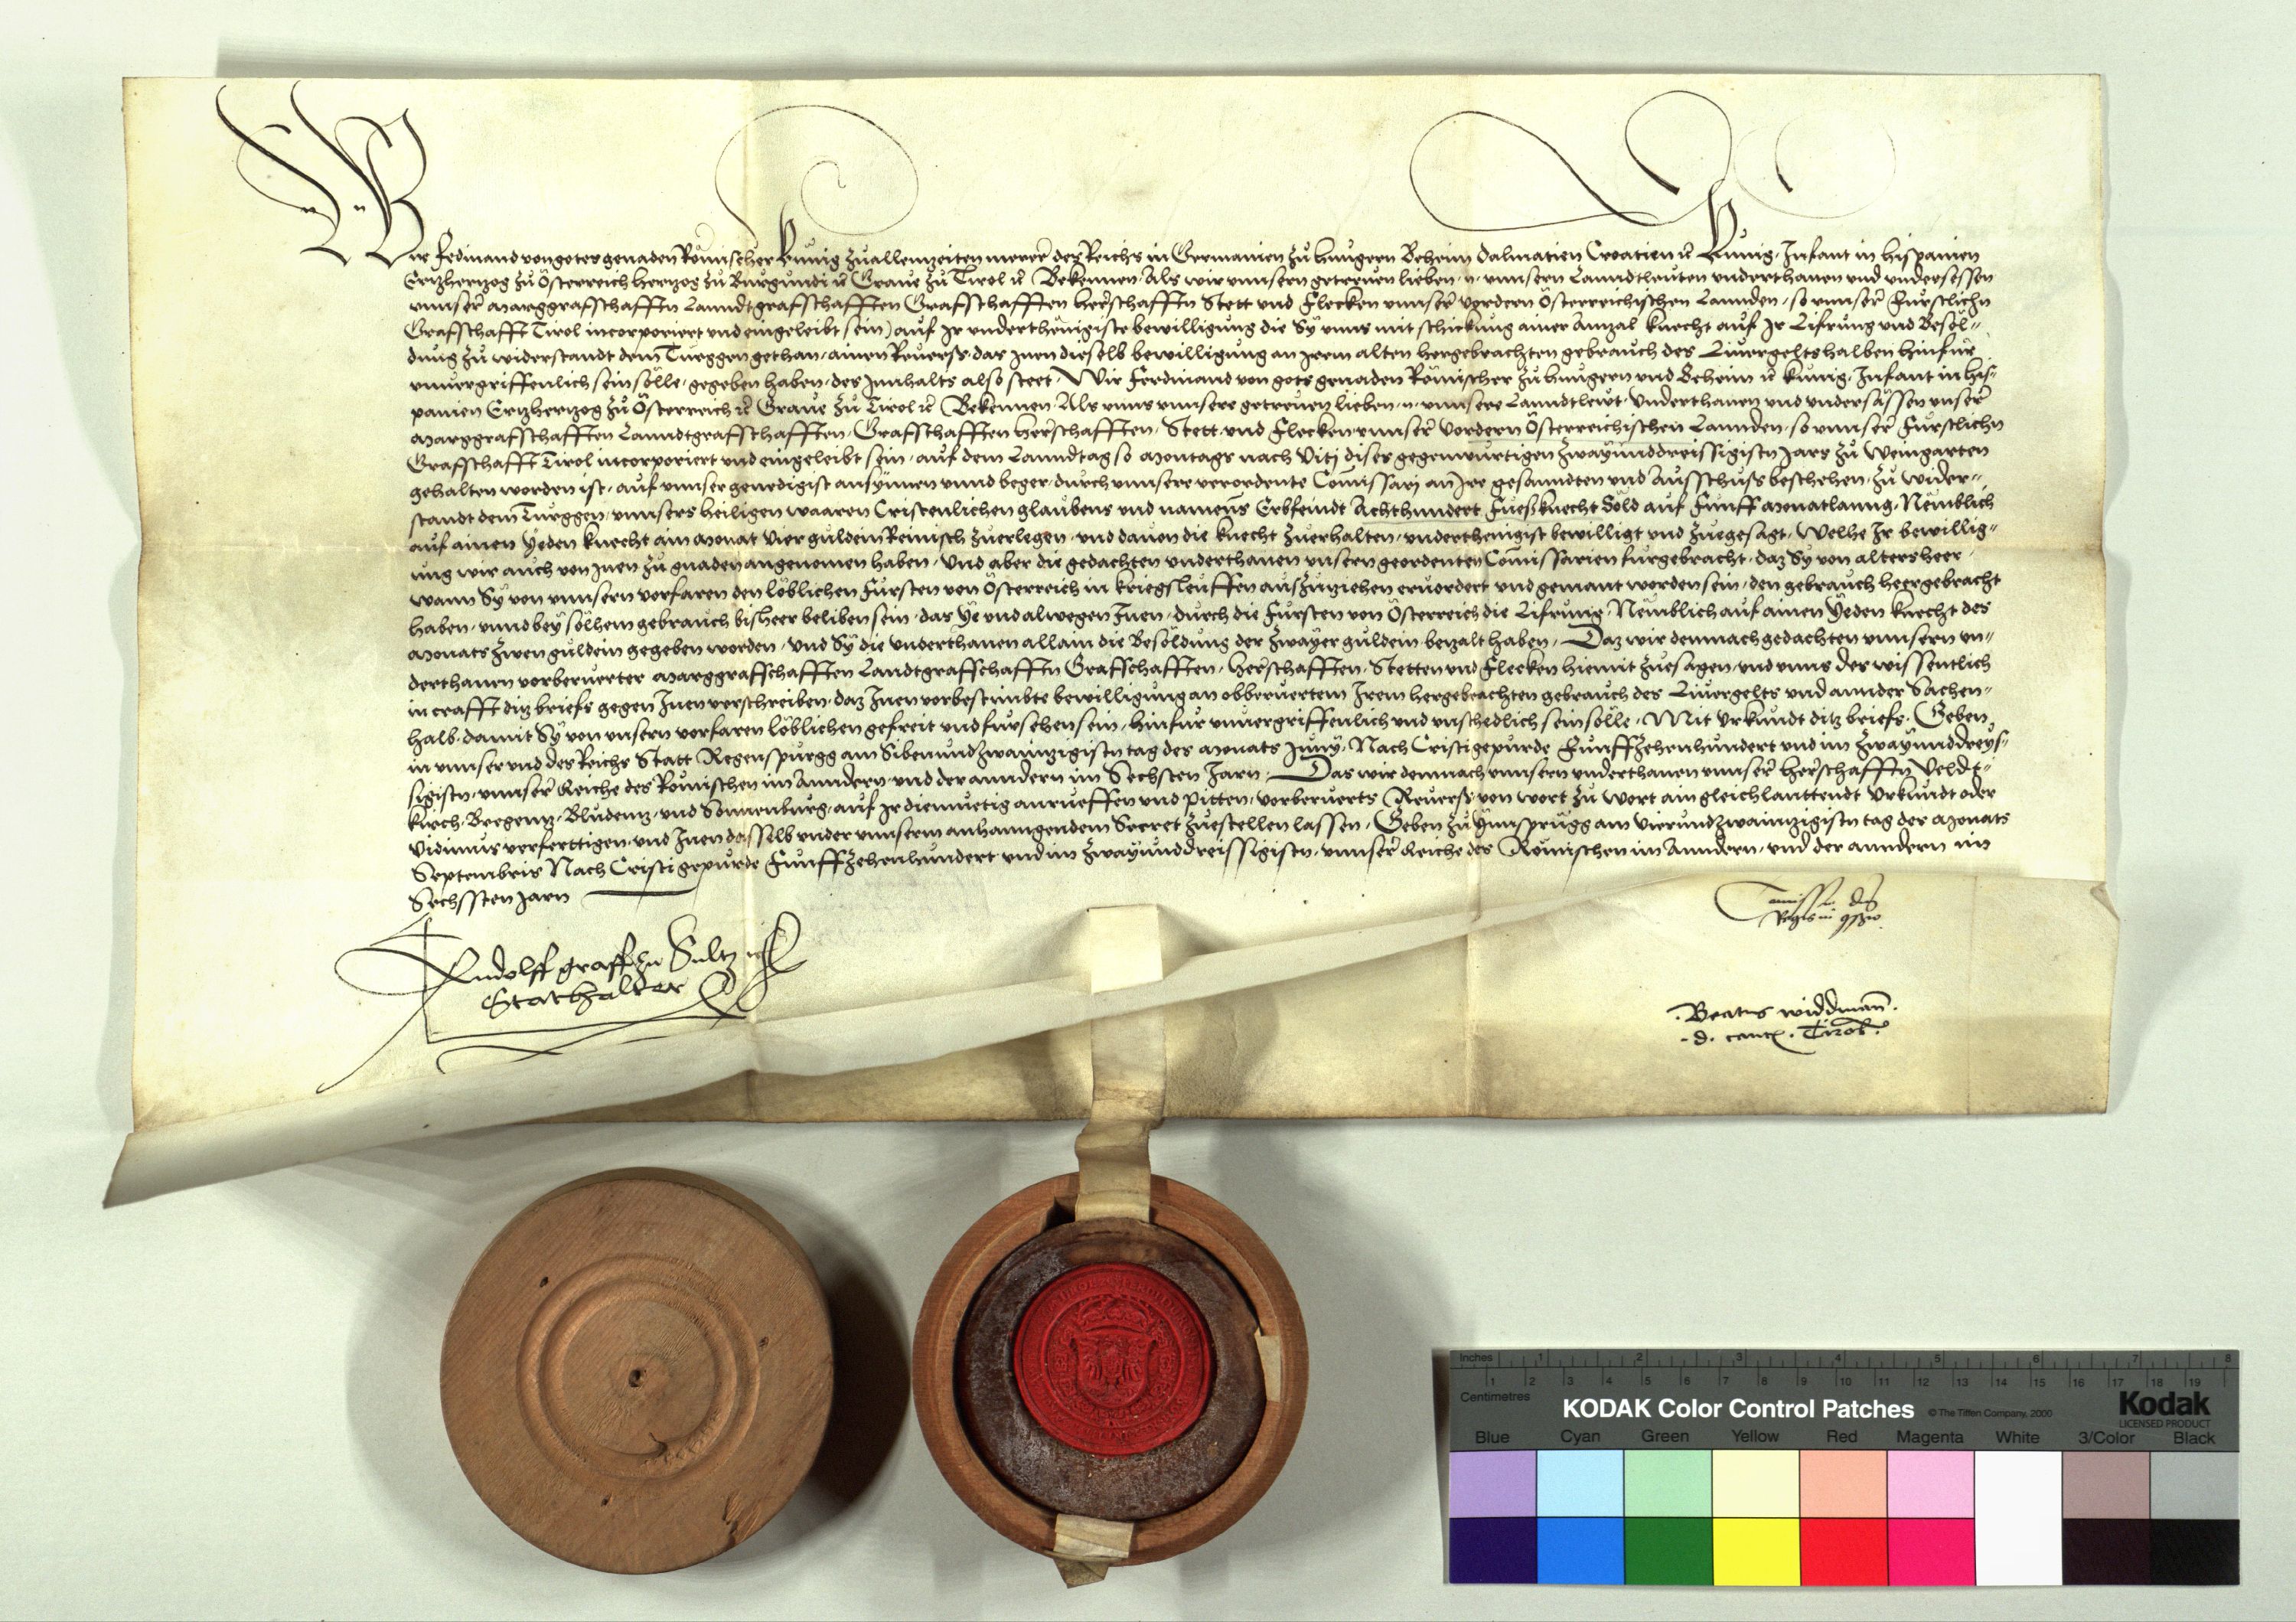 Wir Ferdinand von gotes genaden Römischer Kunig zu allenntzeiten merer des Reichs in Germanien zu hungern Beheim Dalmatien Croatien rc Kunig, Infant in hispanien
Ertzhertzog zu Österreich hertzog zu Burgundi rc Graue zu Tirol rc Bekennen, Als wir vnnsern getrewen lieben .n. vnnsern Lanndtleuten vnderthanen vnd vndersessen
vnnser Marggrafschafftn Lanndtgrafschafften Grafschafften herschafftn Stett vnd Flecken vnnser vordern Österreichischen Lannden, so vnnser Furstlichn
Grafschafft Tirol incorporiert vnd eingeleibt sein) auf Ir vnderthenigiste bewilligung die Sy vnns mit schickung ainer Anzal knecht auf Ir Lifrung vnd Besol-
dung zu widerstandt dem Turggen gethan, ainen Reuerss, das Inen dieselb bewilligung an Irem alten hergebrachten gebrauch des Liuergelts halben hinfur
vnuergriffenlich sein sölle, gegeben haben, des Innhalts also steet, Wir Ferdinand von gots genaden Römischer zu hungern vnd Beheim rc kunig, Infant in his-
panien Ertzhertzog zu Österreich rc Graue zu Tirol rc Bekennen Als vnns vnnsere getrewen lieben .n. vnnsere Lanndtleut, Vnderthanen vnd vndersassen vnser
Marggrafschafften Lanndtgrafschafften, Grafschafften herschafften, Stett vnd Flecken vnnser vordern Österreichischen Lannden, so vnnser Furstlichn
Grafschafft Tirol incorporiert vnd eingeleibt sein, auf dem Lanndtag so Montags nach Viti diser gegenwurtigen zwayunddreissigistn Jars zu Weingarten
gehalten worden ist, auf vnnser genedigist ansynnen vnnd beger, durch vnnsere verordente Comissarj an Ire gesanndten vnd Ausschuss beschehen, zu wider-
standt dem Turggen, vnnsers heiligen waaren Cristenlichen glaubens vnd namens Erbfeindt Achthundert Fuessknecht Sold auf Funff Monatlanng, Nemblich
auf ainen yeden knecht am Monat vier guldein Reinisch zuerlegen, vnd dauon die knecht zuerhalten, vnderthenigist bewilligt vnd zuegesagt, Welhe Ir bewillig-
ung wir auch von Inen zu gnaden angenomen haben, Vnd aber die gedachten vnderthanen vnsern geordenten Comissarien furgebracht, daz Sy von altersheer,
wann Sy von vnnsern vorfaren den löblichen Fursten von Österreich in kriegsleuffen auszuziehen eruordert vnd gemant worden sein, den gebrauch heergebracht
haben, vnnd bey solhem gebrauch bisheer beliben sein, das ye vnd alwegen Inen, durch die Fursten von Österreich die Lifrung, Nemblich auf ainen yeden knecht des
Monats zwen guldein gegeben worden, vnd Sy die vnderthanen allain die Besoldung der zwayer guldein betzalt haben, Daz wir demnach gedachten vnnsern vn-
derthanen vorberuerter Marggrafschafften Landtgrafschafftn Grafschafften, herschafften, Stetten vnd Flecken hiemit zuesagen, vnd vnns des wissentlich
in crafft ditz briefs gegen Inen verschreiben, daz Inen vorbestimbte bewilligung an obberuertem Irem hergebrachten gebrauch des Liuergelts vnd annder Sachen-
halb, damit Sy von vnsern vorfaren löblichen gefreit vnd fursehen sein, hinfur vnuergriffenlich vnd vnschedlich sein sölle, Mit vrkundt ditz briefs, Geben
in vnnser vnd des Reichs Statt Regenspurgg am Sibenundzwaintzigistn tag des Monats Junij, Nach Cristi gepurde Funffzehenhundert vnd im zwayunddreys-
sigistn, vnnser Reiche des Römischen im Anndern, vnd der anndern im Sechsten Jarn, Das wir demnach vnnsern vnderthanen vnnser herschafftn Veldt-
kirch, Bregentz, Bludentz, vnd Sonnenburg, auf Ir diemuetig anrueffen vnd pitten, vorberuerts Reuerss von wort zu wort ain gleichlauttendt Vrkundt oder
Vidimus verferttigen, vnd Inen dasselb vnder vnnserm anhanngendem Secret zuestellen lassen, Geben zu Ynnsprugg am Vierundzwaintzigistn tag des Monats
Septembris Nach Cristi gepurde Funffzehenhundert vnd im zwayunddreissigistn, vnnser Reiche des Römischen im Anndern, vnd der anndern im
Sechssten Jarn
Rudolff graff zu Sultz
Stathalter
Beatus widdman
d. cantz. Tirol.
Inches 1 2 3 4 5 6 7 8
Centimetres 1 2 3 4 5 6 7 8 9 10 11 12 13 14 15 16 17 18 19
KODAK Color Control Patches © The Tiffen Company, 2000 Kodak
LICENSED PRODUCT
Blue Cyan Green Yellow Red Magenta White 3/Color Black